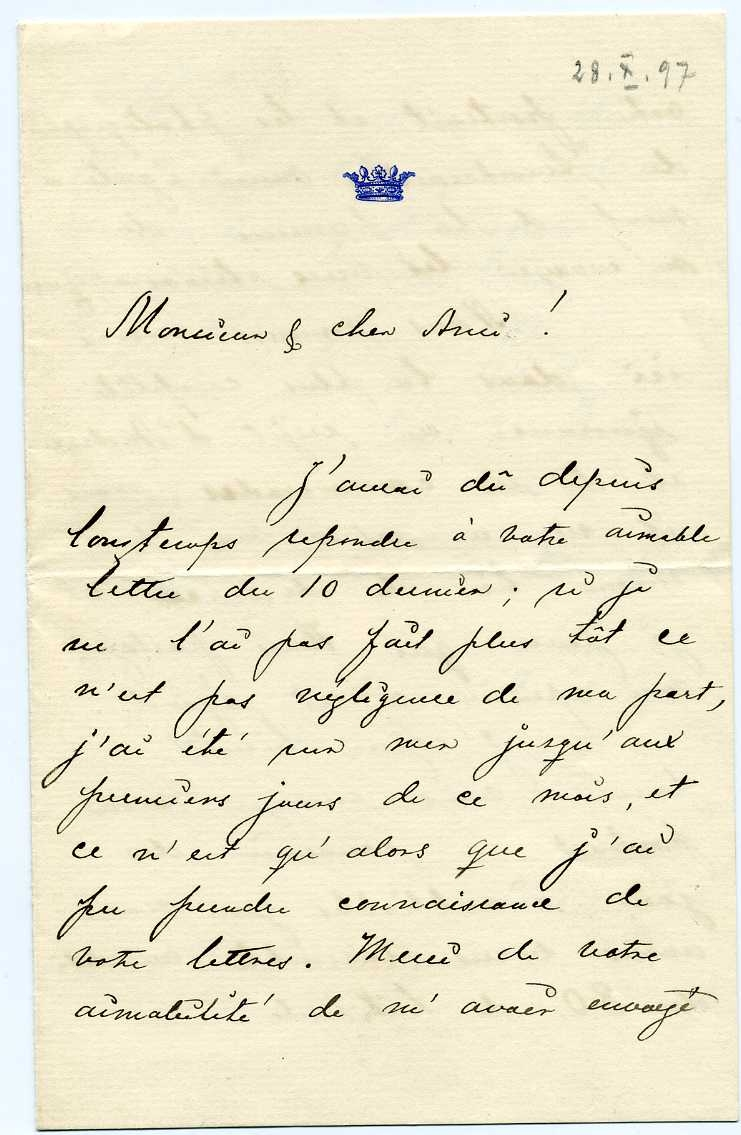 28.X.97
Monsieur & cher Ami !
J'aurai dû depuis
longtemps repondre à votre aimable
lettre du 10 dernier ; si je
ne l'ai pas fait plus tôt ce
n'est pas négligence de ma part,
j'ai été sur mer jusqu'aux
premiers jours de ce mois, et
ce n'est qu'alors que j'ai
pu prendre connaissance de
votre lettres. Merci de votre
aimabilité de m'avoir envoyé